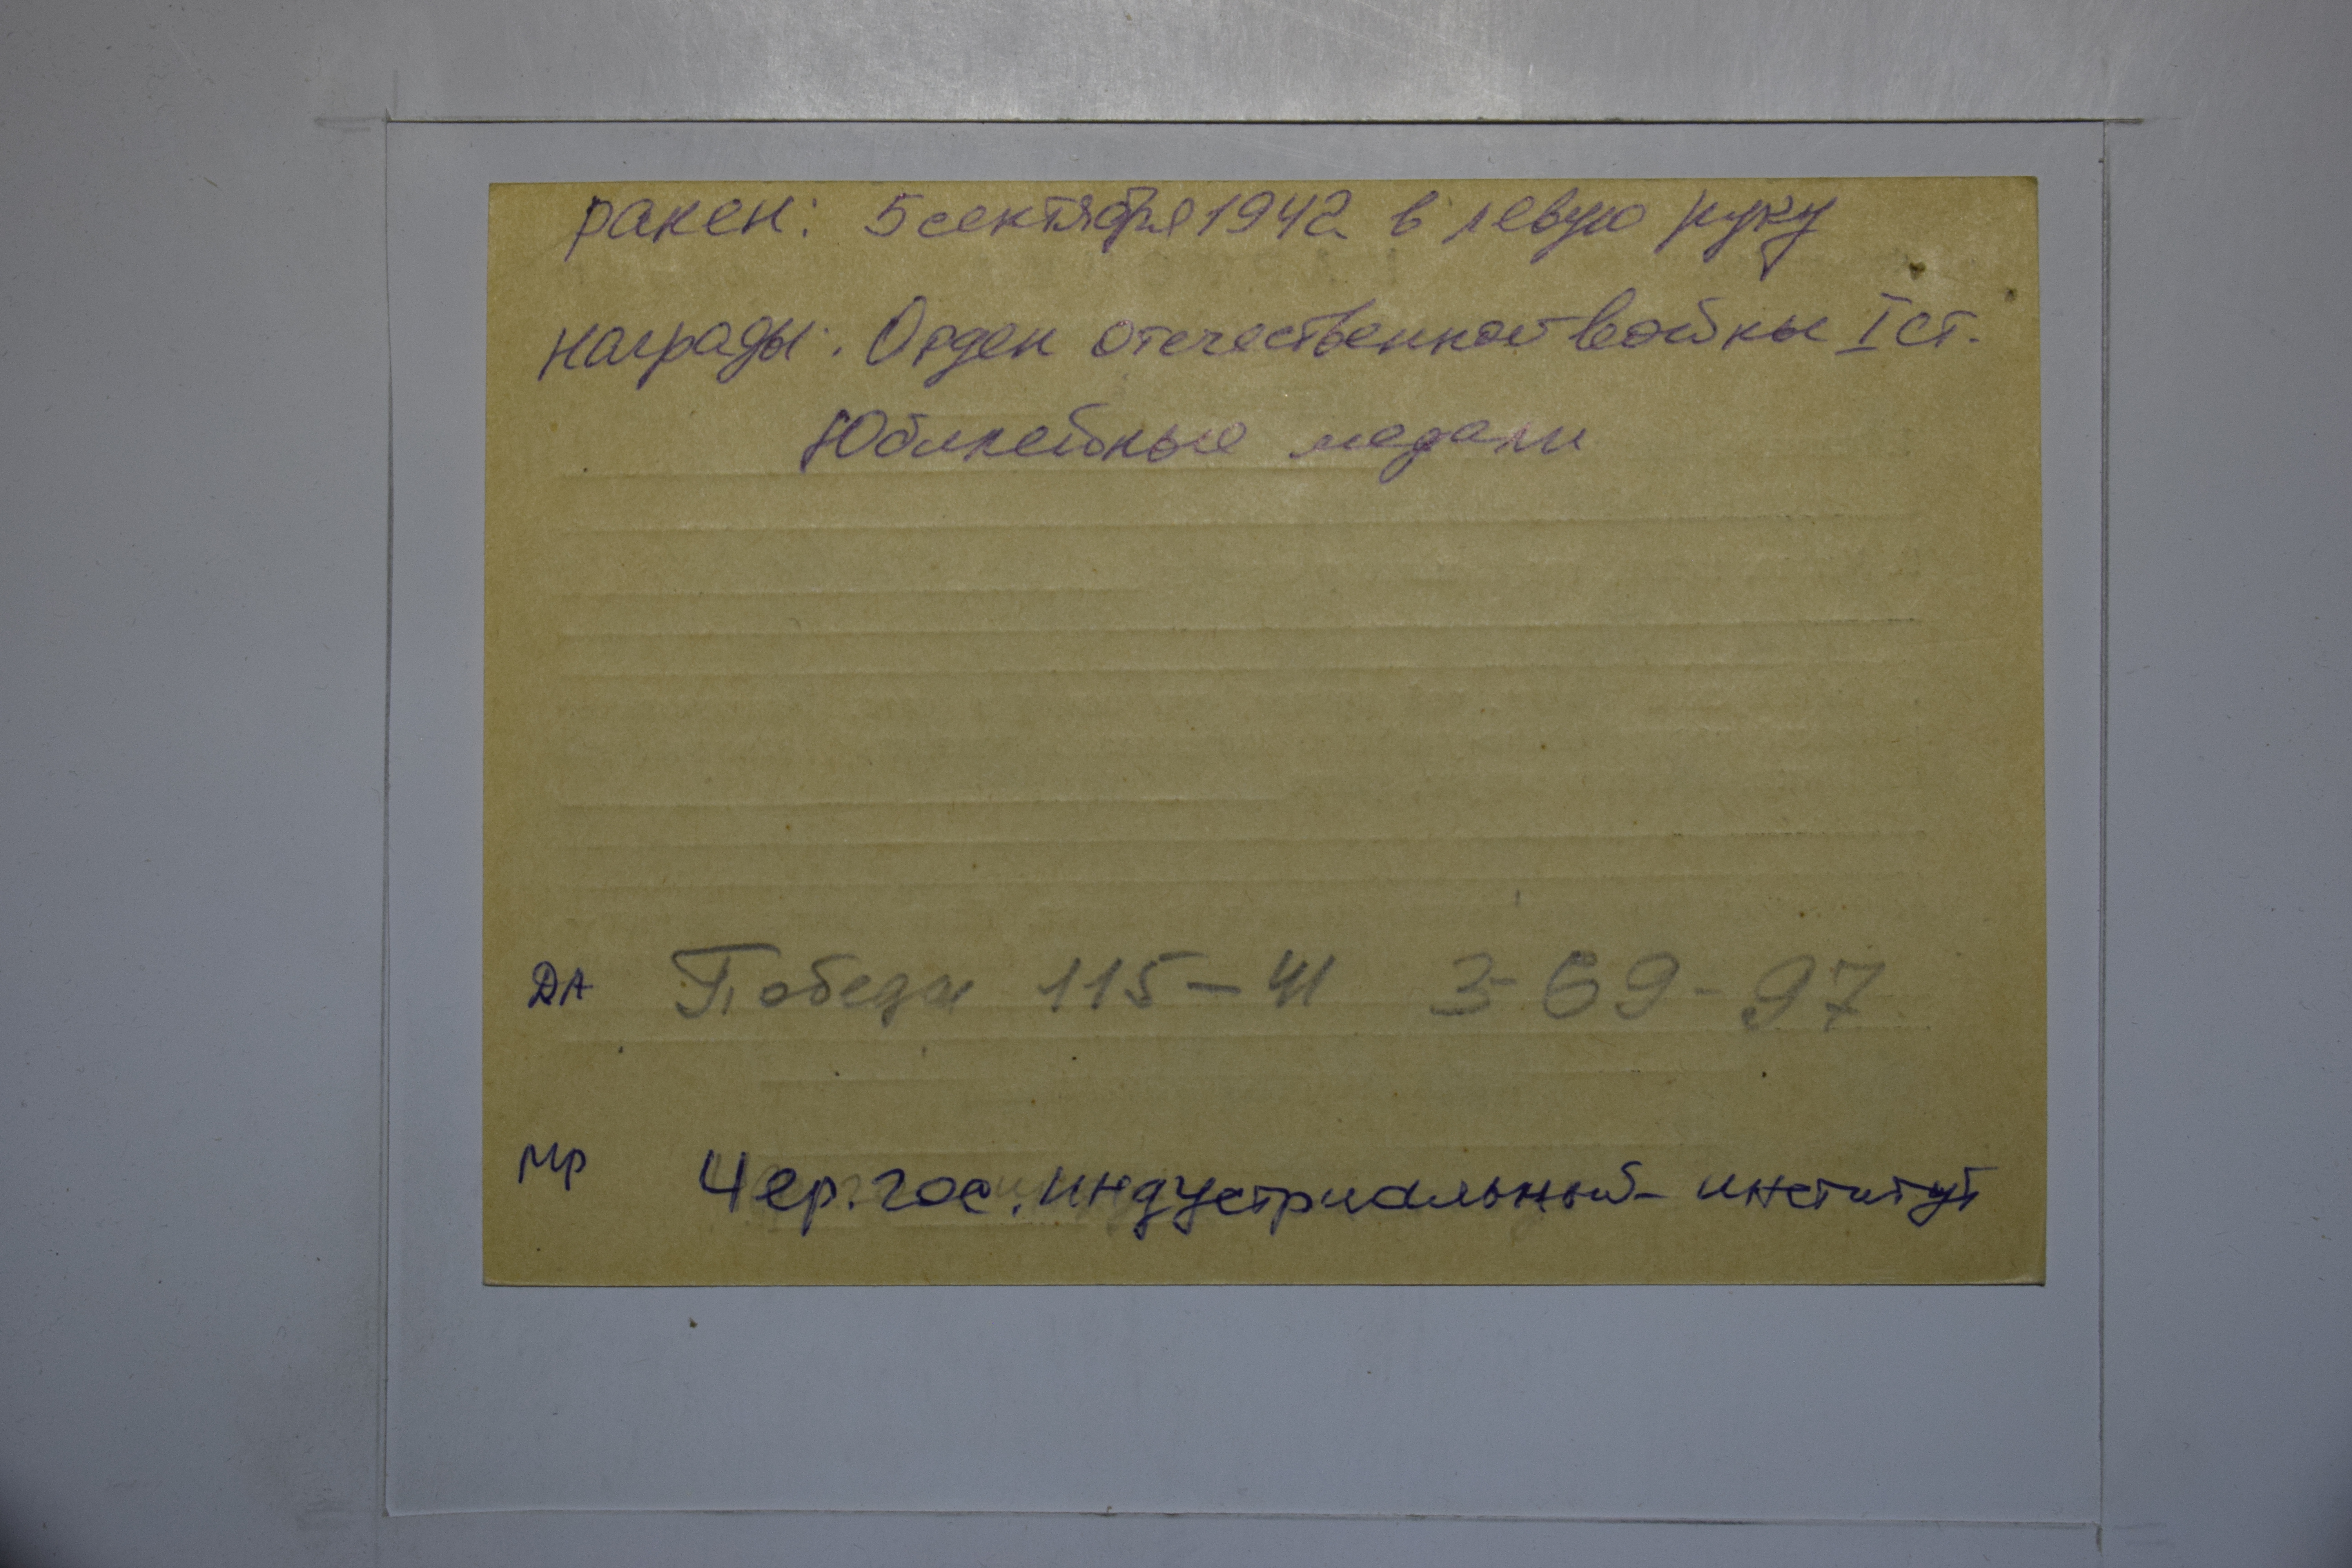 ранен: 5 сентября 1942 в левую руку
награды: Орден отечественной войны I ст.
Юбилейные медали
ДА Победы 115-41 3-69-97
МР Чер. гос. индустриальный институт